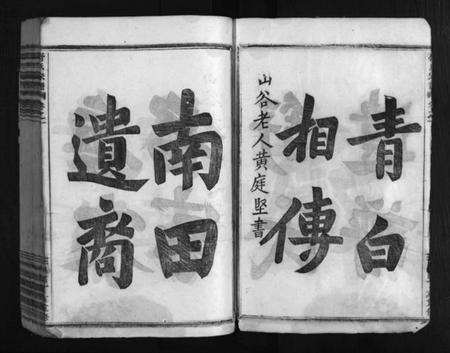 青白
相傳
山谷老人黄庭堅書
南田
遺裔